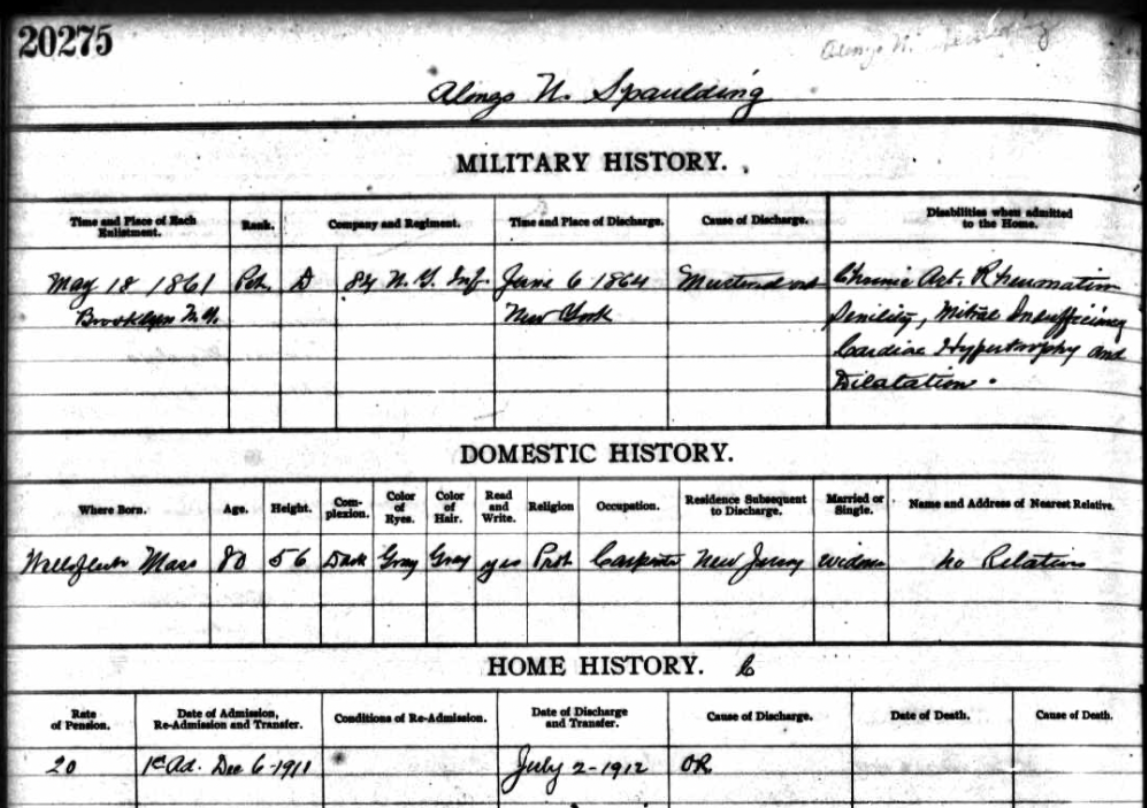 20275
Alonzo N. Spaulding
Alonzo N. Spaulding
MILITARY HISTORY.
Time and Place of Each Enlistment. Rank. Company and Regiment. Time and Place of Discharge. Cause of Discharge. Disabilities when admitted to the Home.
May 18 1861 Pvt. D 84 N.Y. Inf. June 6 1864 Mustered out Chronic Art. Rheumatism
Brooklyn N.Y. New York Senility, Mitral Insufficiency
Cardiac Hypertrophy and
Dilatation.
DOMESTIC HISTORY.
Where Born. Age. Height. Complexion. Color of Eyes. Color of Hair. Read and Write. Religion Occupation. Residence Subsequent to Discharge. Married or Single. Name and Address of Nearest Relative.
Wellfleet Mass 80 5 6 Dark Gray Gray yes Prot Carpenter New Jersey widower No Relatives
HOME HISTORY.
Rate of Pension. Date of Admission, Re-Admission and Transfer. Conditions of Re-Admission. Date of Discharge and Transfer. Cause of Discharge. Date of Death. Cause of Death.
20 1st Ad. Dec 6-1911 July 2-1912 OR